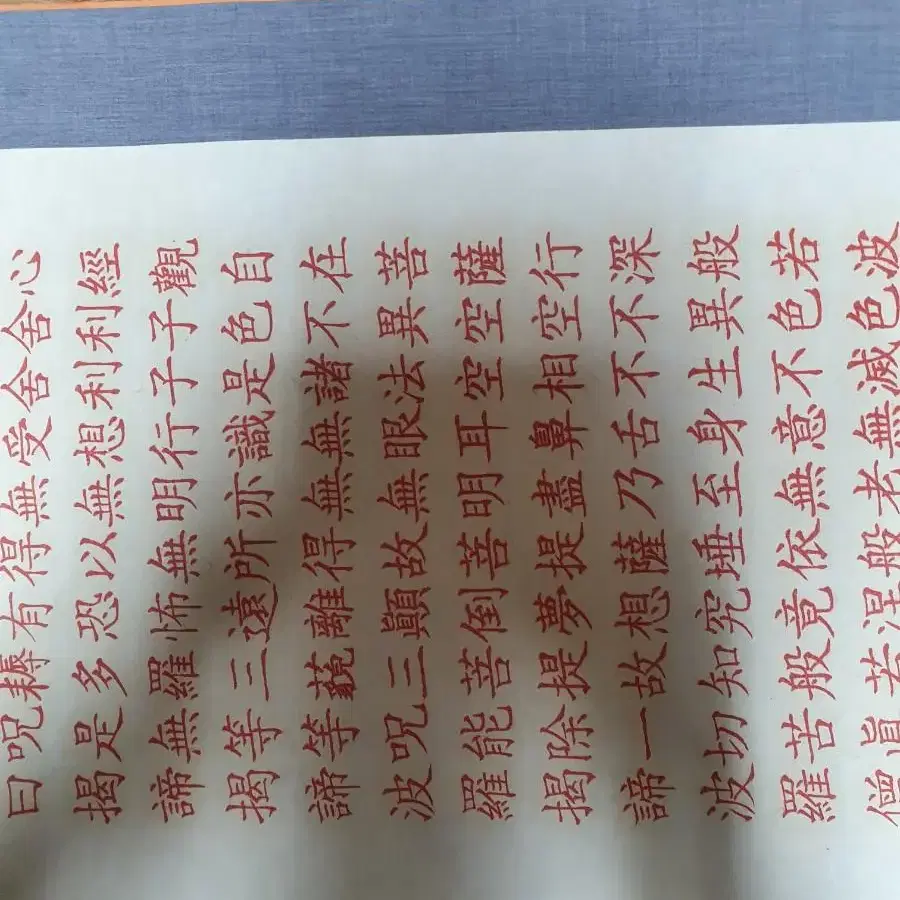 心經觀自在菩薩行深般若波
舍利子色不異空空不異色色
舍利子是諸法空相不生不滅
受想行識無眼耳鼻舌身意無
無無明亦無無明盡乃至無老
得以無所得故菩提薩埵依般
有恐怖遠離顛倒夢想究竟涅
耨多羅三藐三菩提故知般若
呪是無等等呪能除一切苦眞
曰揭諦揭諦波羅揭諦波羅僧